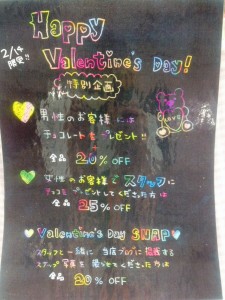 Happy
2/14
限定!!
Valentine's Day!
特別企画
男性のお客様には
チョコレートをプレゼント!!
全品 20% OFF
女性のお客様でスタッフに
チョコをプレゼントしてくださった方は
全品 25% OFF
Love
Valentine's Day SNAP
スタッフと一緒に 当店ブログに掲載する
スナップ写真を 撮らせてくださった方は
全品 20% OFF